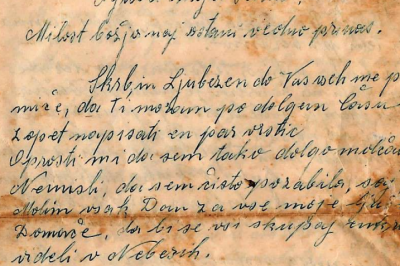 Milost božja naj ostani vedno pri nas.
Skrb in Ljubezen do Vas vseh me p
niče, da Ti moram po dolgem času
zopet napisati en par vrstic
Oprosti mi da sem tako dolgo molča
Nemisli, da sem čisto pozabila, saj
Molim vsak Dan za vse moje lju
Domače, da bi se vsi skupaj
videli v Nebesih.